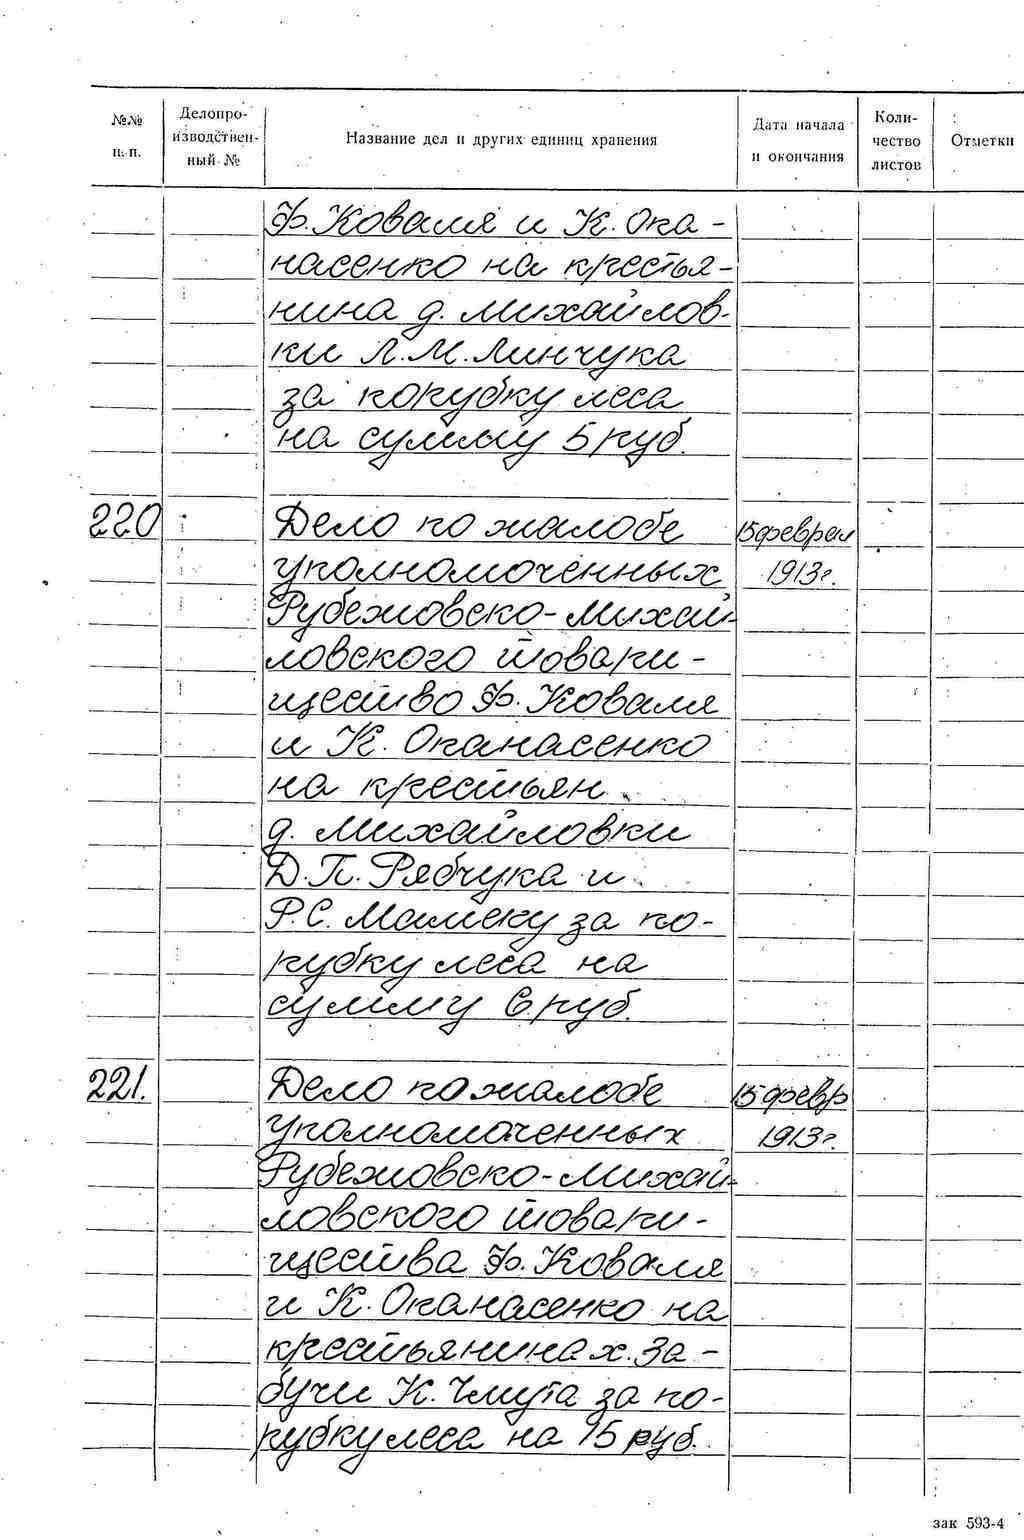 №№ п. п.
Делопро-
изводствен-
ный №
Название дел и других единиц хранения
Дата начала
и окончания
Коли-
чество
листов
Отметки
Ф. Коваля и К. Опа-
насенко на крестья-
нина д. Михайлов-
ки Л.М. Линчука
за порубку леса
на сумму 5 руб.
220 Дело по жалобе 15 феврал
уполномоченных 1913г.
Рубежовско-Михай-
ловского товари-
щество Ф. Коваля
и К. Опанасенко
на крестьян
д. Михайловки
Д.П. Рябчука и
Р.С. Мамеку за по-
рубку леса на
сумму 6 руб.
221. Дело по жалобе 15 февр
уполномоченных 1913г.
Рубежовско-Михай-
ловского товари-
щества Ф. Коваля
и К. Опанасенко на
крестьянина х. За-
бучи К. Чмута за по-
рубку леса на 15 руб.
зак 593-4